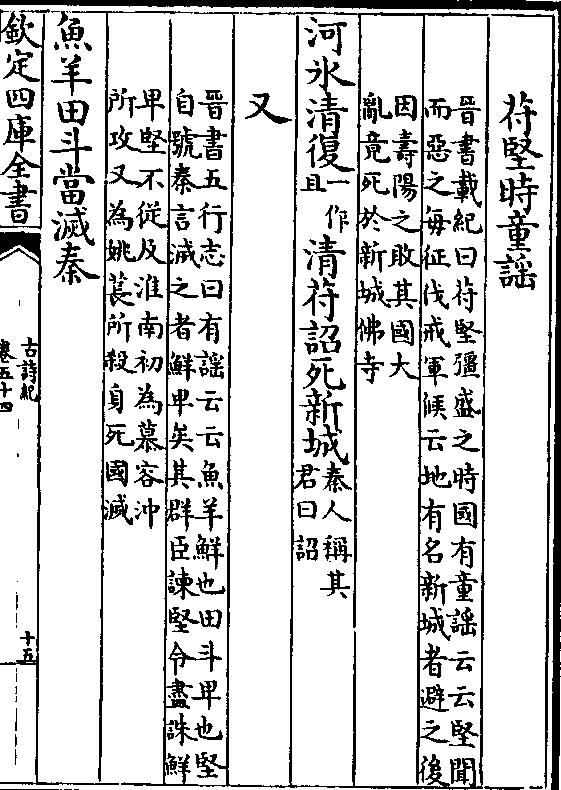 苻堅時童謡
晉書載紀曰苻堅彊盛之時國有童謡云云堅聞
而惡之每征伐戒軍候云地有名新城者避之後
因壽陽之敗其國大
亂竟死於新城佛寺
河水清復一作且清苻詔死新城秦人稱其君曰詔
又
晉書五行志曰有謡云云魚羊鮮也田斗卑也堅
自號秦言滅之者鮮卑矣其群臣諫堅令盡誅鮮
卑堅不從及淮南初為慕容沖
所攻又為姚萇所殺身死國滅
魚羊田斗當滅秦
欽定四庫全書
古詩紀
卷五十四
十五